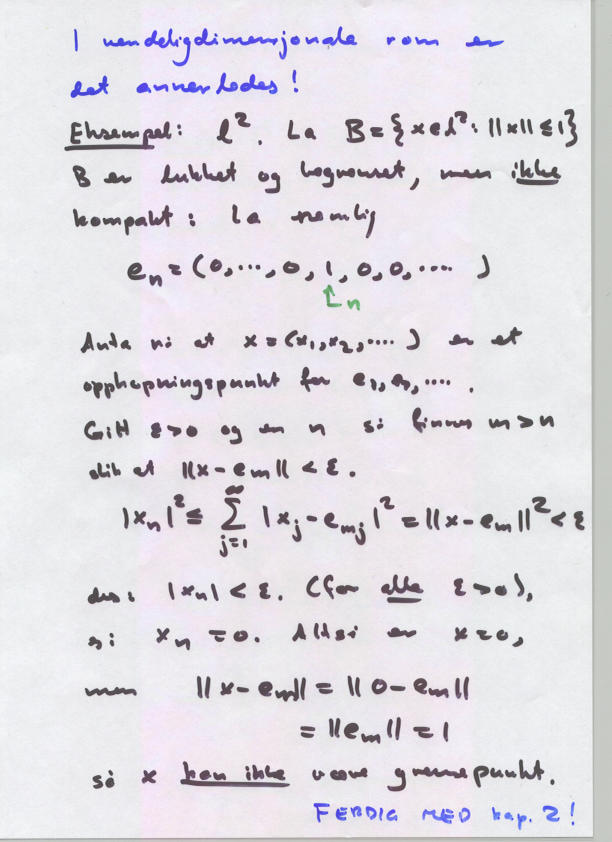 I uendeligdimensjonale rom er
det annerledes!
Eksempel: ℓ². La B = {x ∈ ℓ²: ||x|| ≤ 1}
B er lukket og begrenset, men ikke
kompakt: La nemlig
eₙ = (0, ..., 0, 1, 0, 0, .... )
↑n
Anta nå at x = (x₁, x₂, .... ) er et
opphopningspunkt for e₁, e₂, .... .
Gitt ε > 0 og en n så finnes m > n
slik at ||x - eₘ|| < ε.
|xₙ|² ≤ ∑_{j=1}^{∞} |xⱼ - eₘⱼ|² = ||x - eₘ||² < ε
dvs: |xₙ| < ε. (for alle ε > 0),
så: xₙ = 0. Altså er x = 0,
men ||x - eₘ|| = ||0 - eₘ||
= ||eₘ|| = 1
så x kan ikke være grensepunkt.
FERDIG MED kap. 2!